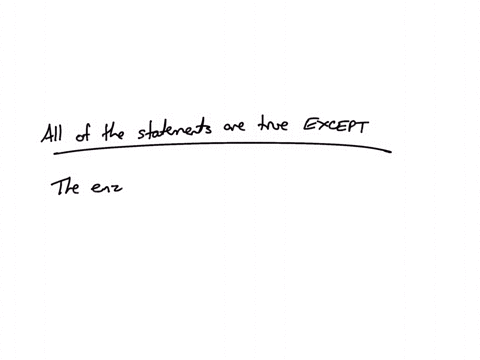 All of the statements are true EXCEPT
The enz